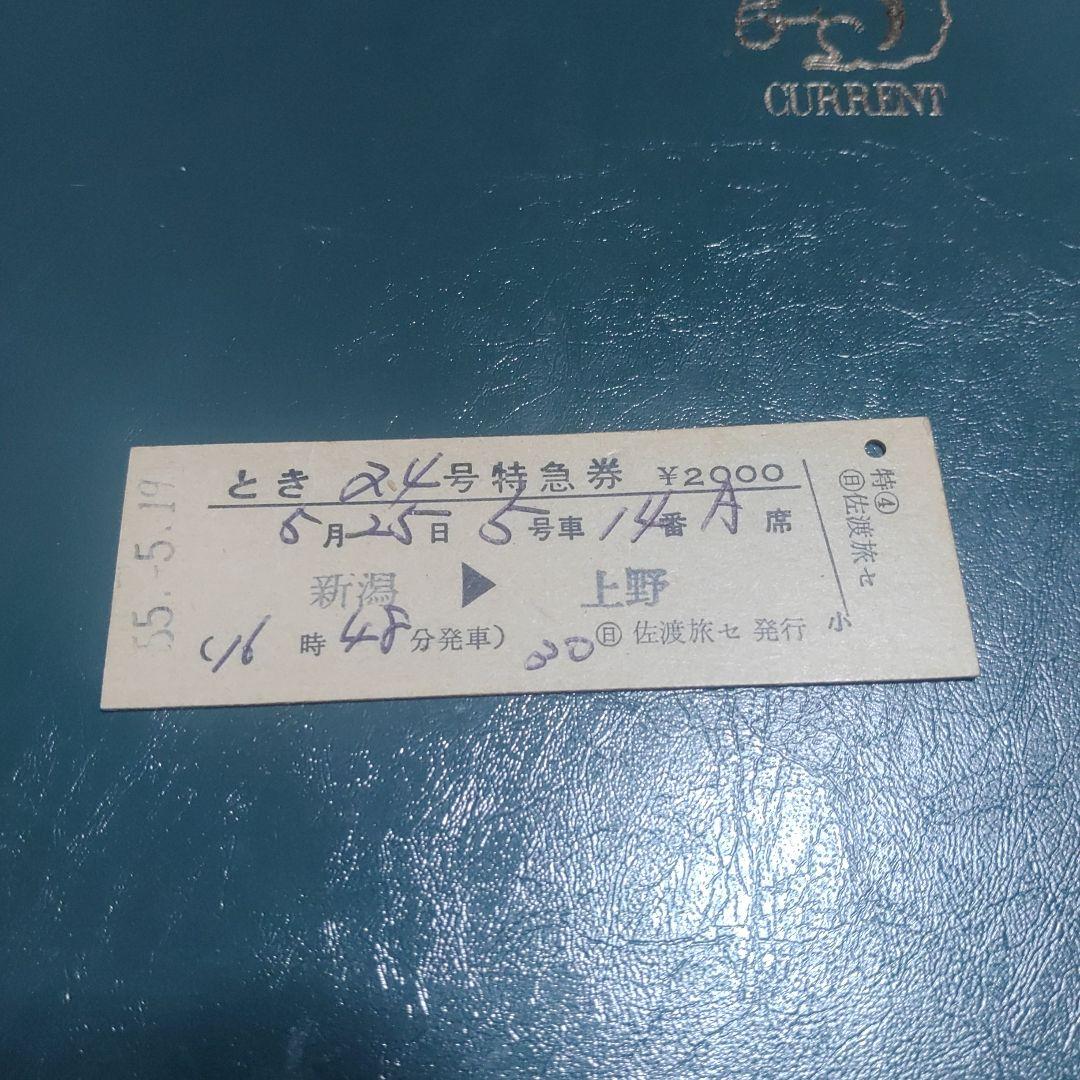 CURRENT
とき 24号特急券 ¥2000
5月25日 5号車 14番 A席
新潟 ▶ 上野
(16時48分発車) 020 ㊐ 佐渡旅セ 発行
55.-5.19
特④
㊐佐渡旅セ
小